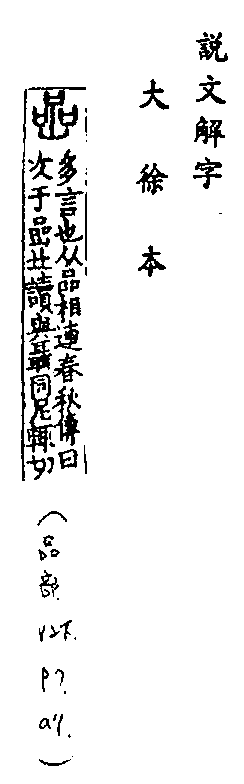 説文解字
大徐本
嵒
多言也从品相連春秋傳曰
次于嵒北讀與聶同尼輒切
（品部
P7.
a7.）